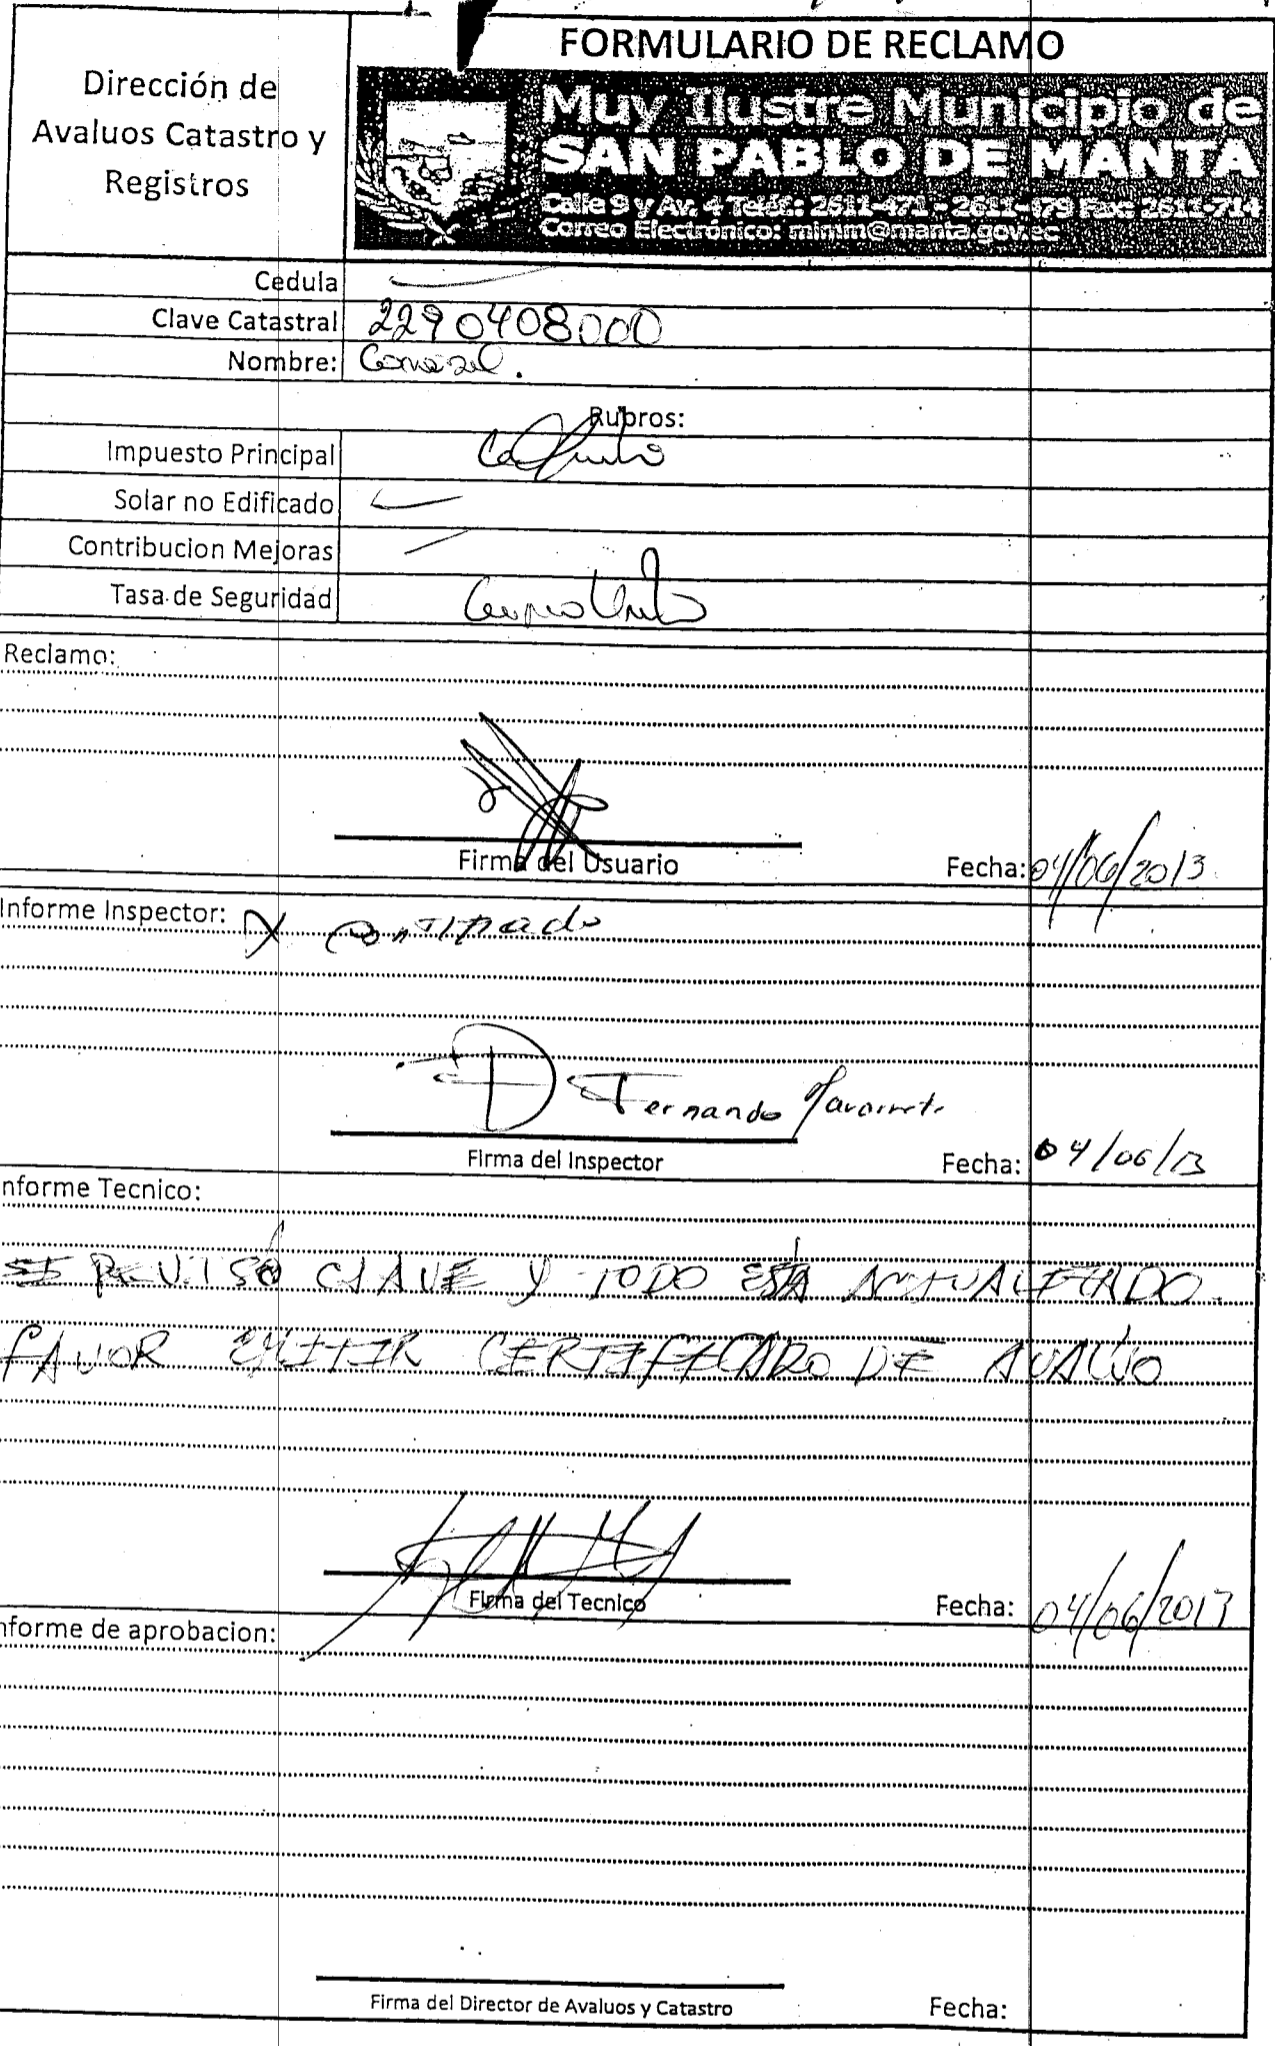 FORMULARIO DE RECLAMO
Dirección de
Avaluos Catastro y
Registros
Muy Ilustre Municipio de
SAN PABLO DE MANTA
Calle 9 y Av. 4 Telf.: 2611-471 - 2611-479 Fax: 2611-714
Correo Electrónico: mimm@manta.gov.ec
Cedula
Clave Catastral 2290408000
Nombre:
Rubros:
Impuesto Principal
Solar no Edificado
Contribucion Mejoras
Tasa de Seguridad
Reclamo:
Firma del Usuario Fecha: 04/06/2013
Informe Inspector: X
Fernando
Firma del Inspector Fecha: 04/06/13
nforme Tecnico:
SE REVISÓ CLAVE Y TODO ESTÁ ACTUALIZADO.
FAVOR EMITIR CERTIFICADO DE AVALÚO
Firma del Tecnico Fecha: 04/06/2013
nforme de aprobacion:
Firma del Director de Avaluos y Catastro Fecha: